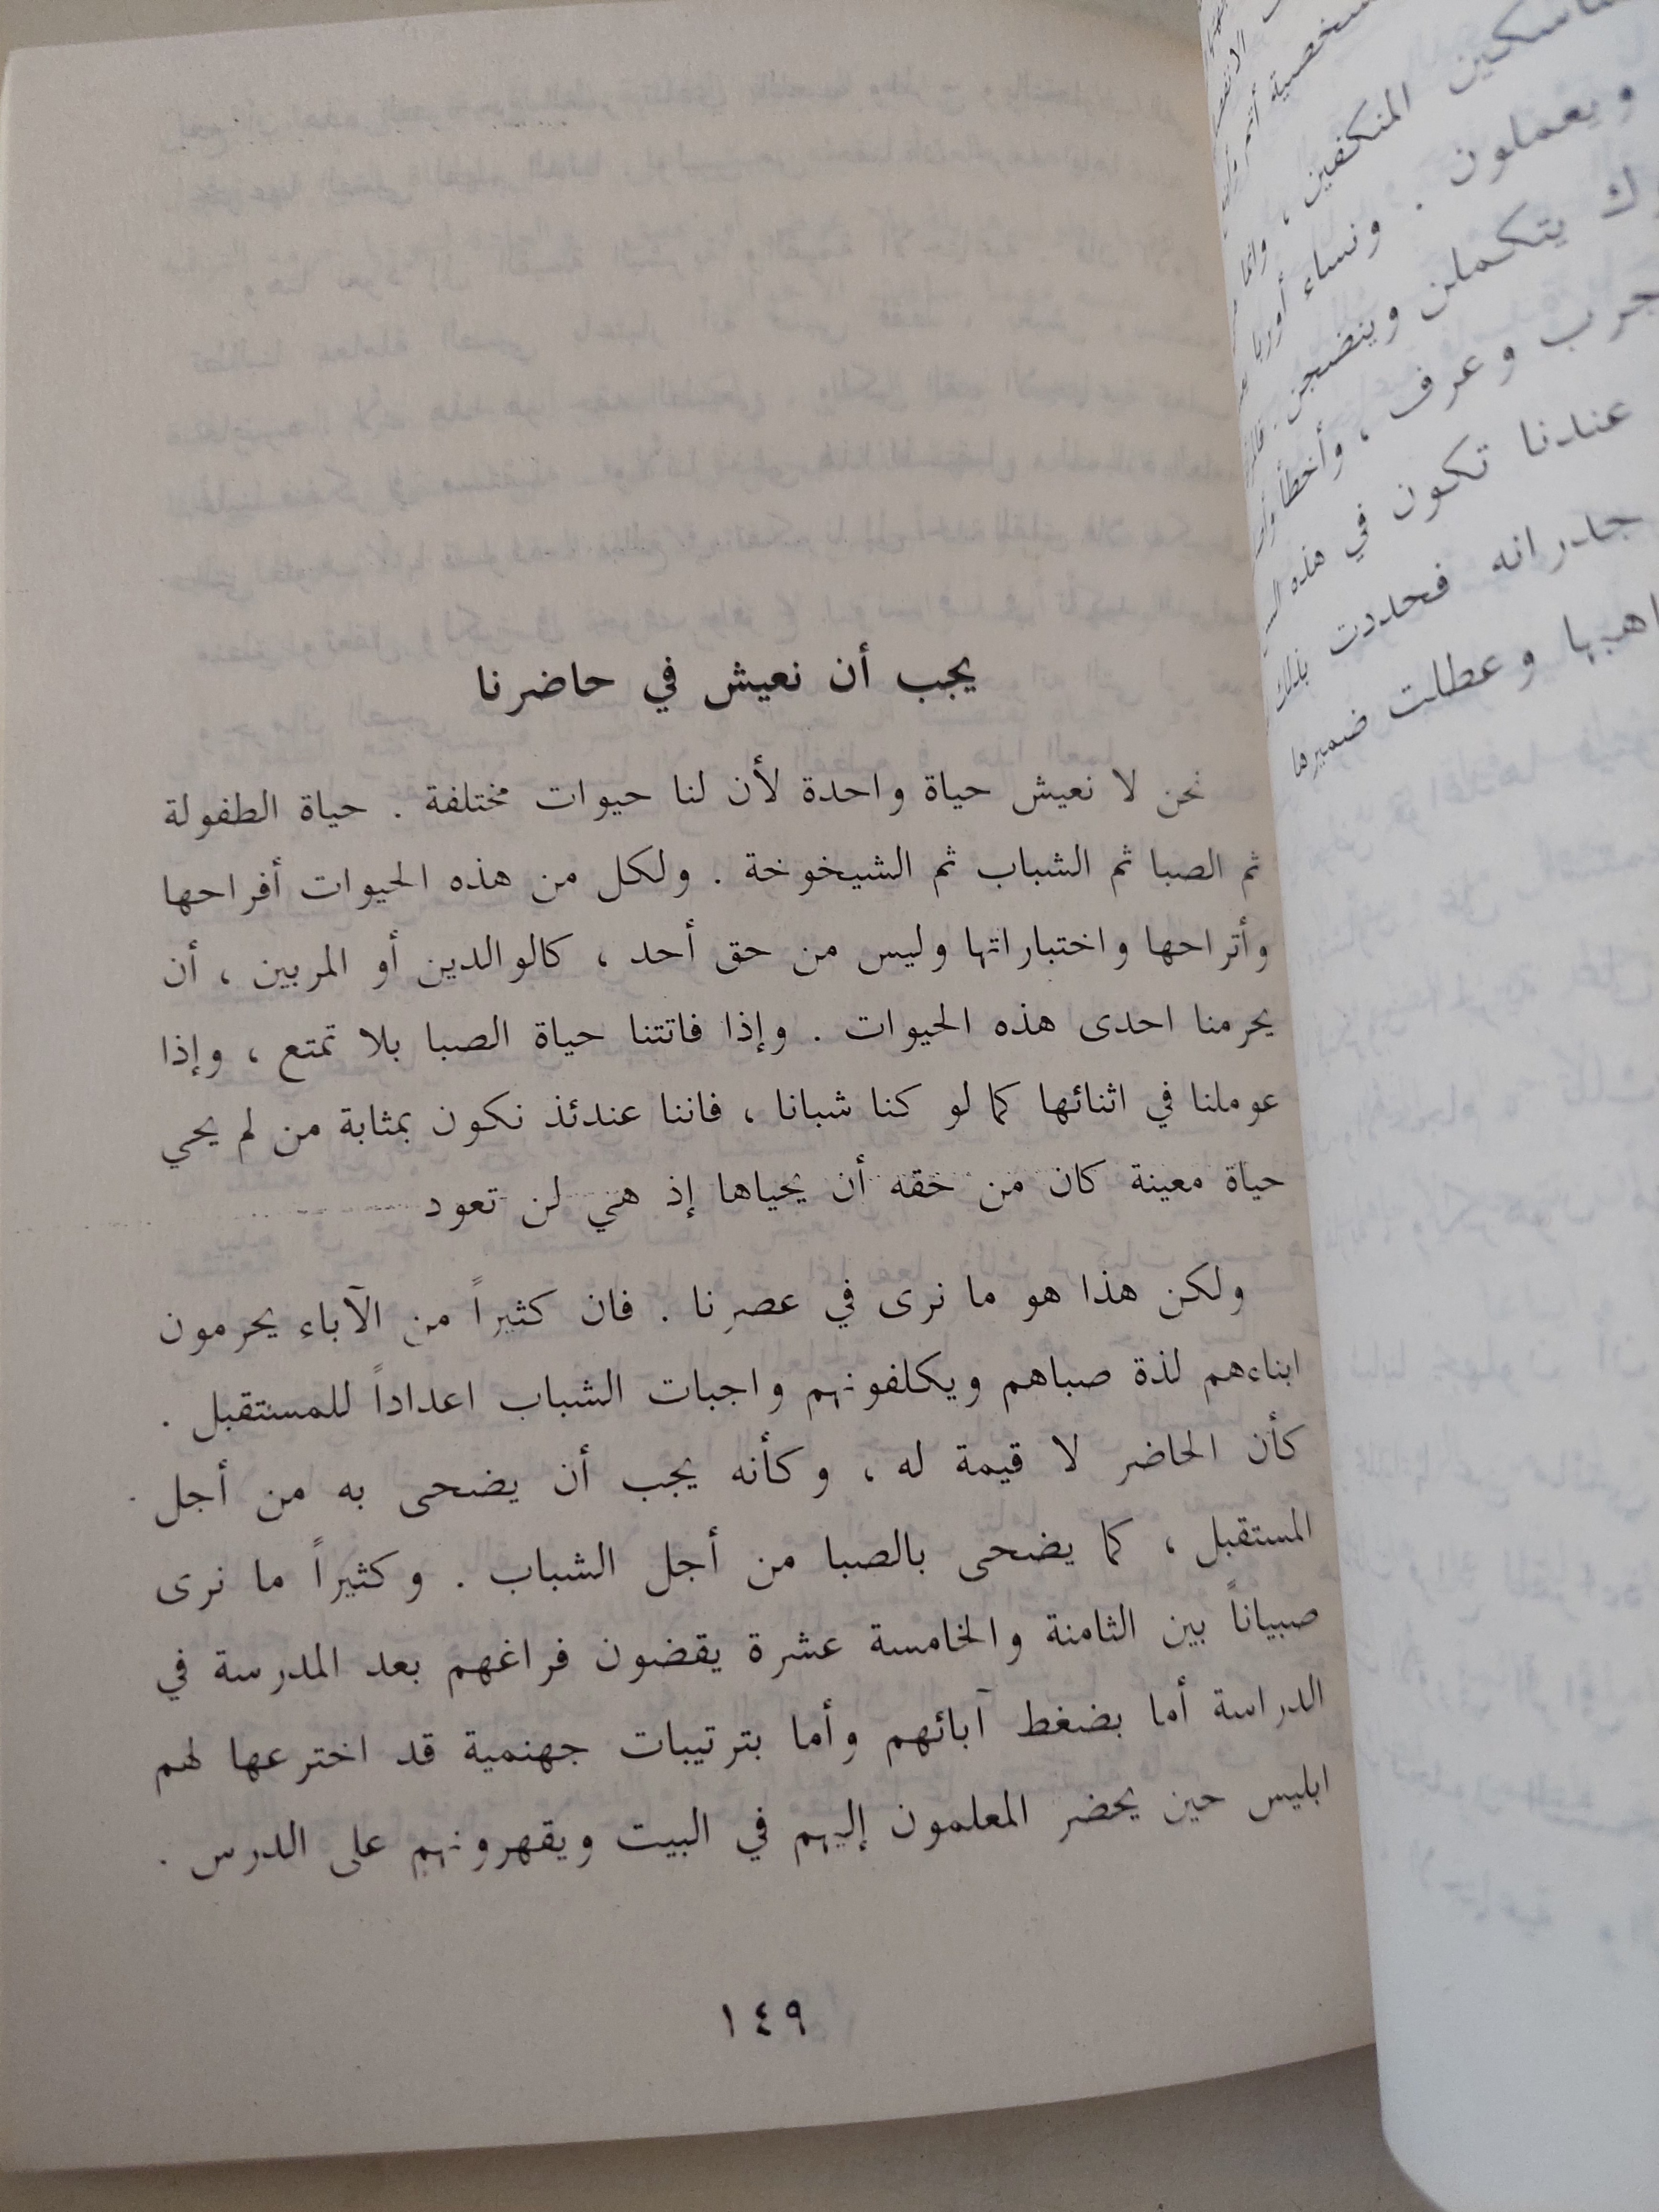 يجب أن نعيش في حاضرنا
نحن لا نعيش حياة واحدة لأن لنا حيوات مختلفة . حياة الطفولة
ثم الصبا ثم الشباب ثم الشيخوخة . ولكل من هذه الحيوات أفراحها
وأتراحها واختباراتها وليس من حق أحد ، كالوالدين أو المربين ، أن
يحرمنا احدى هذه الحيوات . وإذا فاتتنا حياة الصبا بلا تمتع ، وإذا
عوملنا في اثنائها كما لو كنا شبانا ، فاننا عندئذ نكون بمثابة من لم يحي
حياة معينة كان من حقه أن يحياها إذ هي لن تعود
ولكن هذا هو ما نرى في عصرنا . فان كثيراً من الآباء يحرمون
ابناءهم لذة صباهم ويكلفونهم واجبات الشباب اعداداً للمستقبل .
كأن الحاضر لا قيمة له ، وكأنه يجب أن يضحى به من أجل
المستقبل ، كما يضحى بالصبا من أجل الشباب . وكثيراً ما نرى
صبياناً بين الثامنة والخامسة عشرة يقضون فراغهم بعد المدرسة في
الدراسة أما بضغط آبائهم وأما بترتيبات جهنمية قد اخترعها لهم
ابليس حين يحضر المعلمون إليهم في البيت ويقهرونهم على الدرس .
١٤٩
المنكفين ، وانما
ويعملون . ونساء أوربا
يتكملن وينضجن .
جرب وعرف ، وأخطأ
عندنا تكون في هذه
جدرانه فحددت بذلك
وعطلت ضميرها